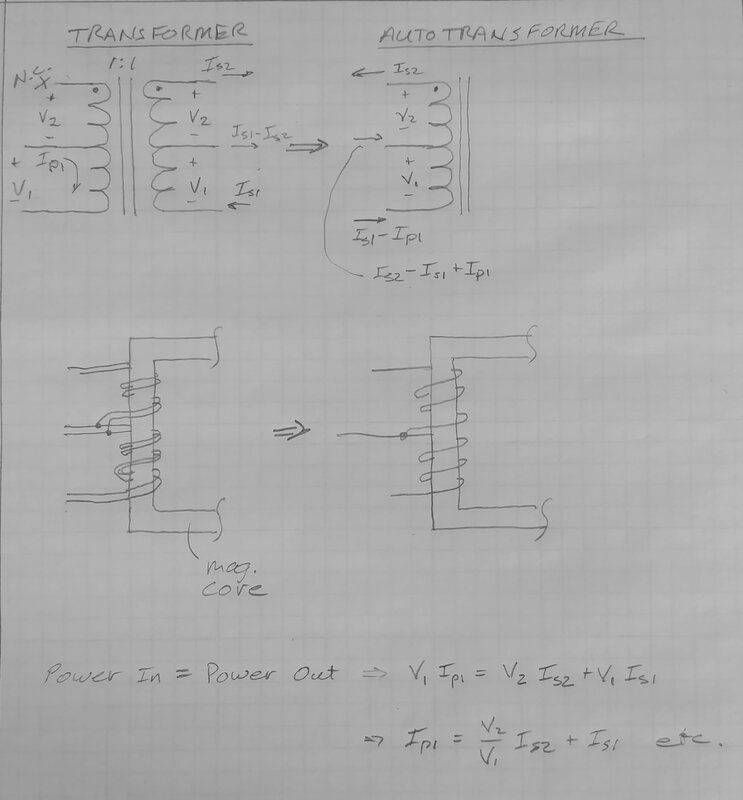 TRANSFORMER
AUTOTRANSFORMER
1:1
N.C.
X
+
V2
-
+ Ip1
V1
-
Is2
+
V2
-
Is1-Is2
+
V1
-
Is1
⇒
Is2
+
V2
-
+
V1
-
Is1-Ip1
Is2-Is1+Ip1
⇒
mag.
core
Power In = Power Out ⇒ V1 Ip1 = V2 Is2 + V1 Is1
⇒ Ip1 = V2/V1 Is2 + Is1 etc.